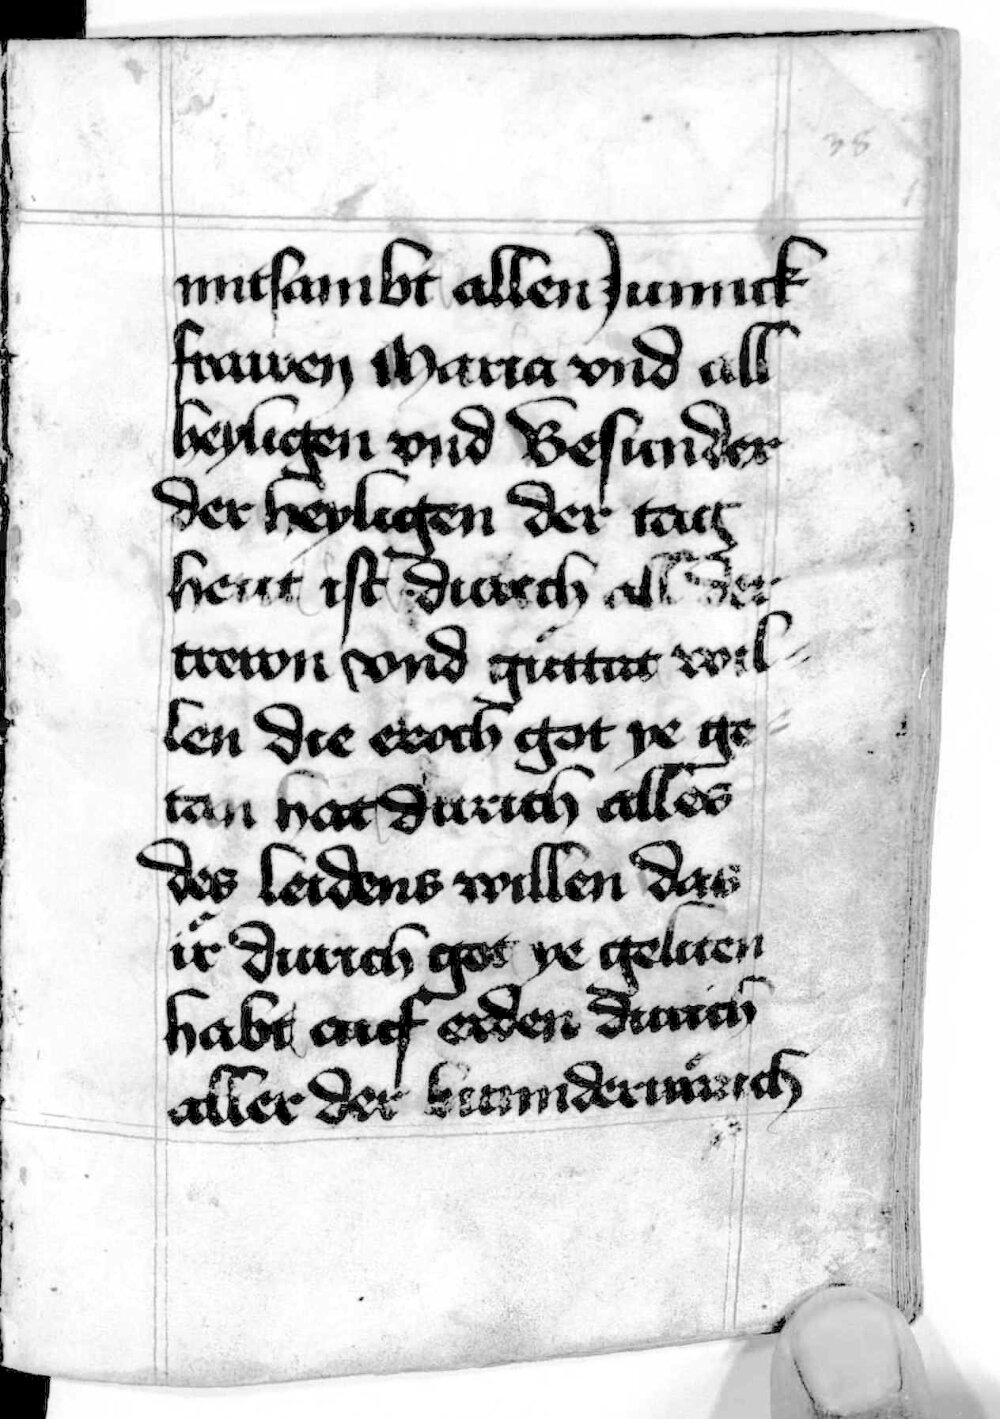 38
mitsambt allen Junnck
frawen Maria vnd all
heyligen vnd Besunder
der heyligen der tag
heut ist durch all der
trewn vnd güttat wil-
len die eẅch got ye ge-
tan hat durich alles
des leidens willen das
ir durich got ye geliten
habt auf erden durich
aller der